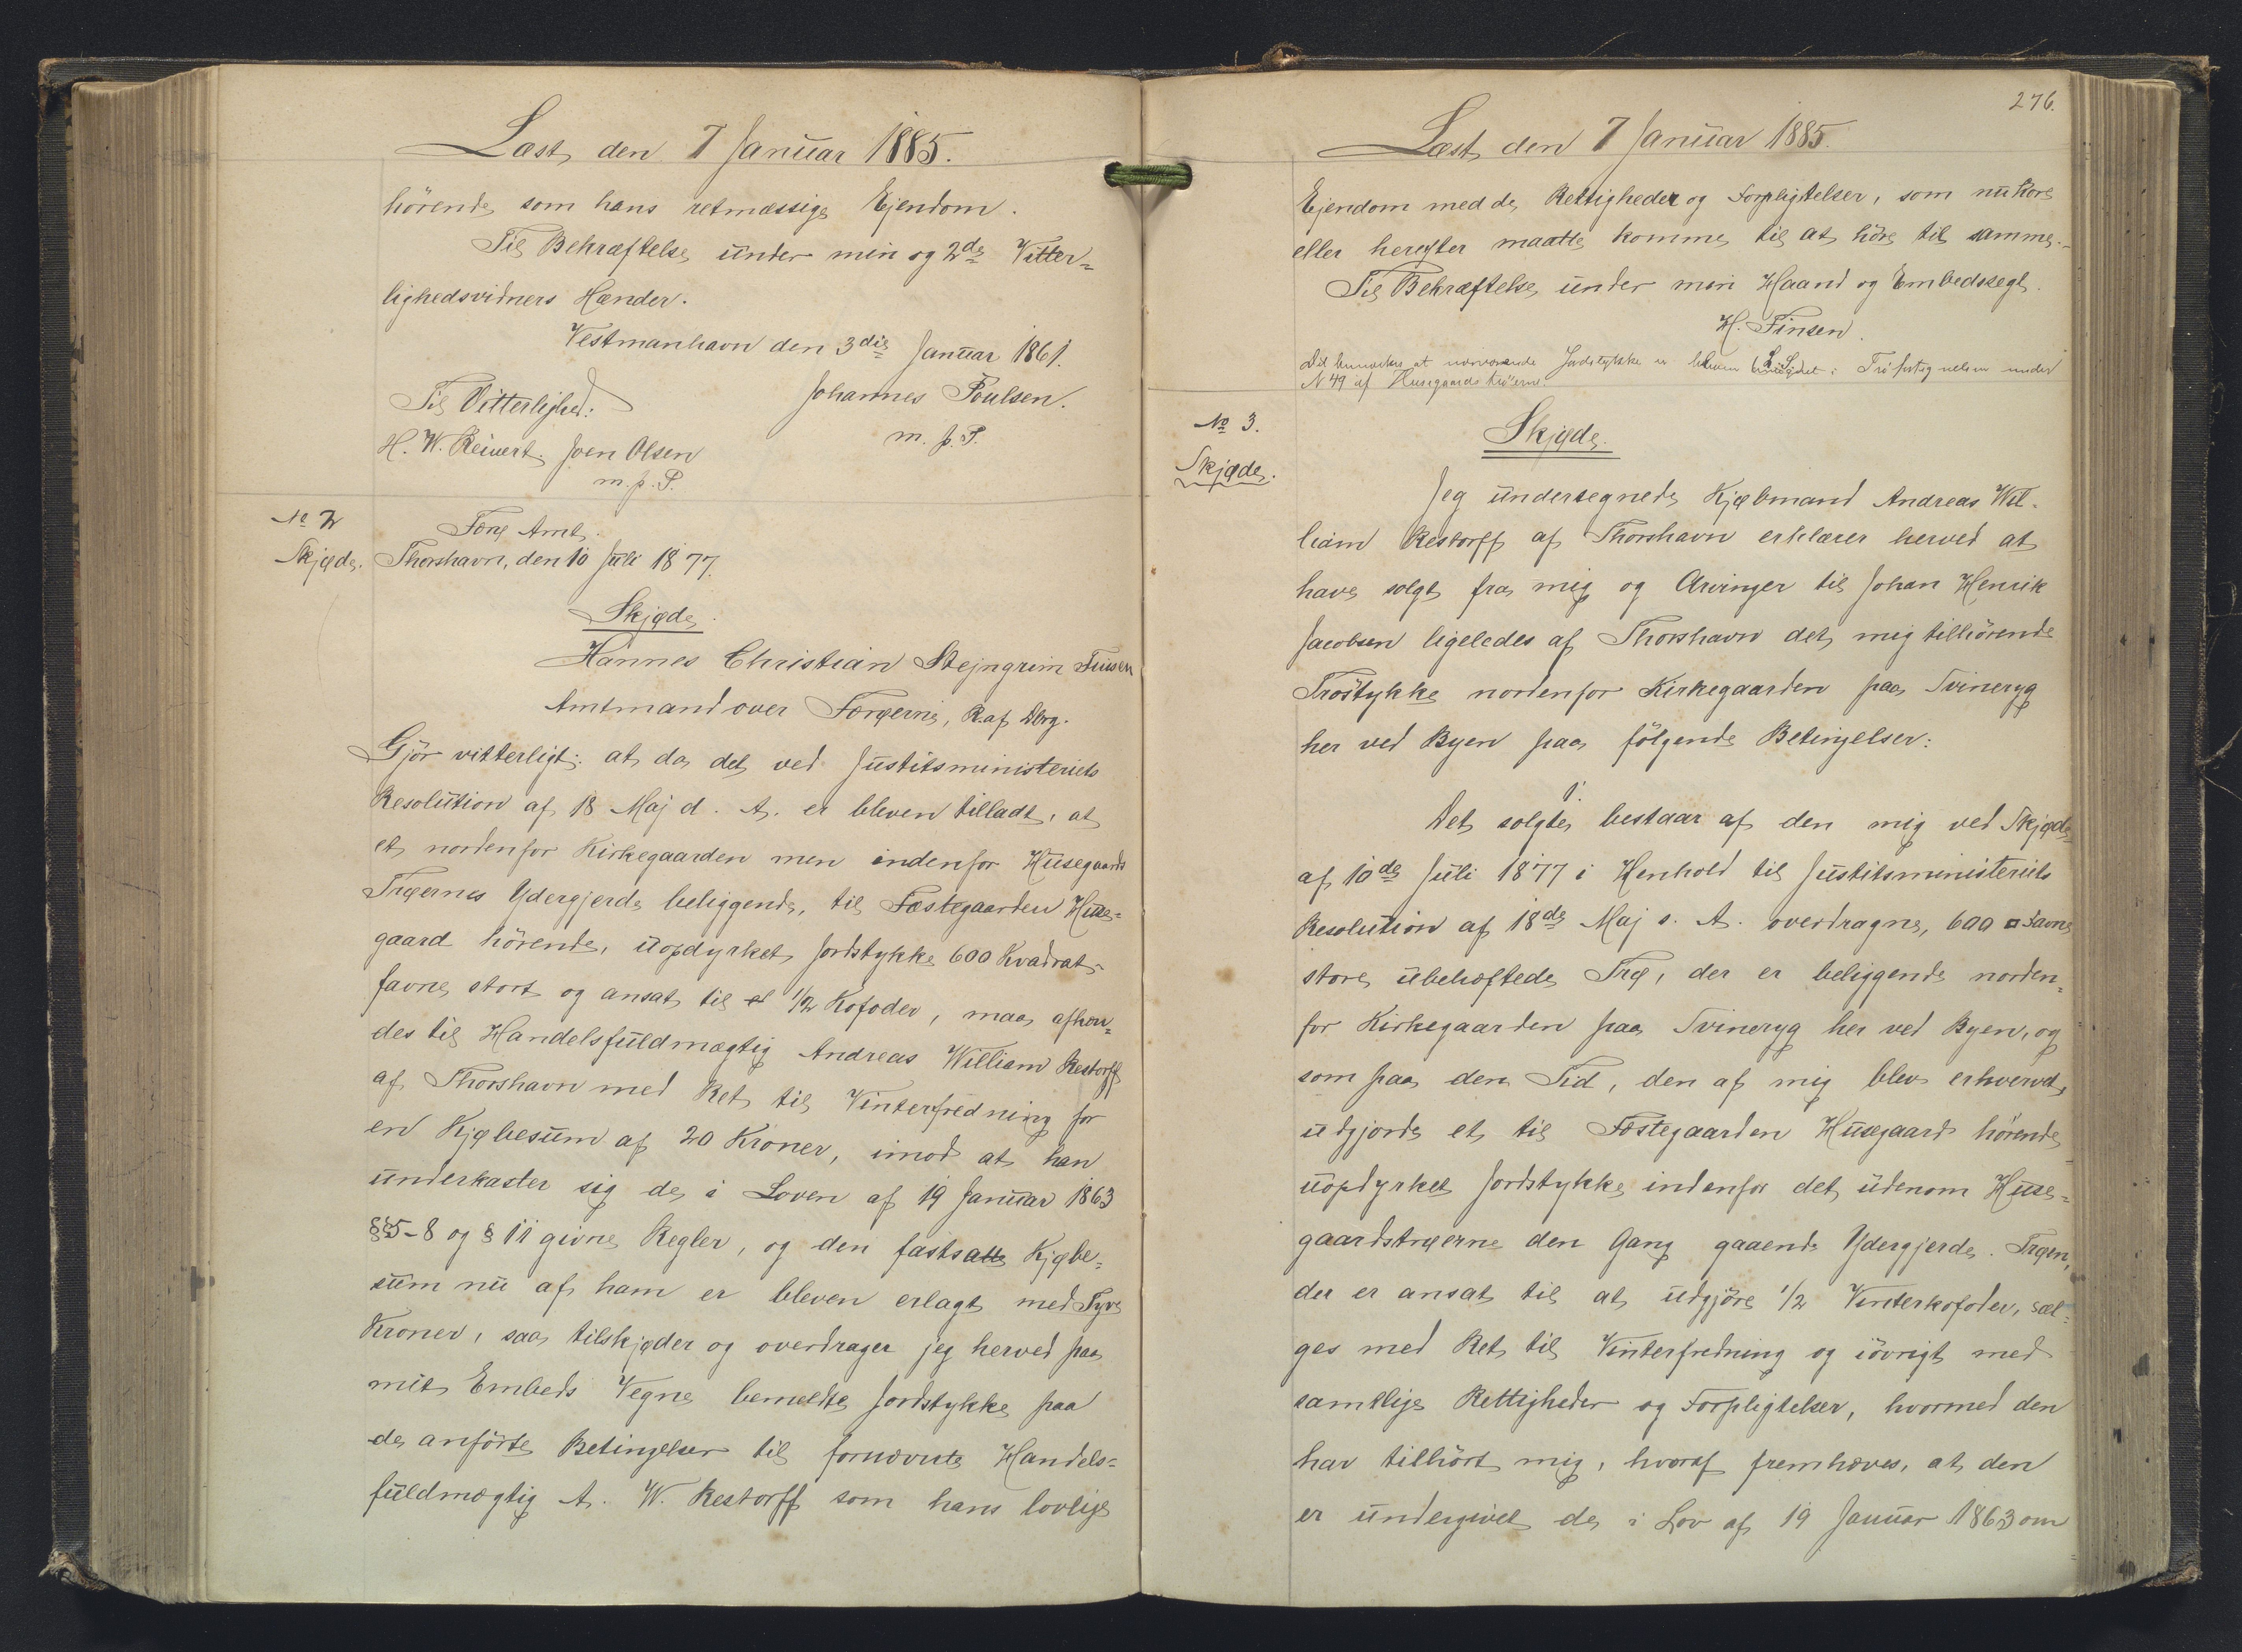 Læst den 7 Januar 1885.
hörende som hans retmæssige Ejendom.
Til Bekræftelse under min og 2de Vitter=
lighedsvidners Hænder.
Vestmanhavn den 3die Januar 1861.
Johannes Poulsen.
m. f. P.
Til Vitterlighed:
H. W. Reinert. Joen Olsen
m. f. P.
No 2
Skjøde.
Færø Amt.
Thorshavn, den 10 Juli 1877.
Skjøde.
Hannes Christian Stejngrim Finsen
Amtmand over Færøerne, R. af Dbrg.
Gjör vitterligt: at da det ved Justitsministeriets
Resolution af 18 Maj d. A. er bleven tilladt, at
et nordenfor Kirkegaarden men indenfor Husegaards
Trøernes Ydergjerde beliggende, til Fæstegaarden Huse=
gaard hörende, uopdyrket Jordstykke 600 Kvadrat-
favne stort og ansat til 1/2 Kofoder, maa afhæn=
des til Handelsfuldmægtig Andreas William Restorff
af Thorshavn med Ret til Vinterfredning for
en Kjøbesum af 20 Kroner, imod at han
underkaster sig de i Loven af 19 Januar 1863
§§5-8 og § 11 givne Regler, og den fastsatte Kjøbe=
sum nu af ham er bleven erlagt med Tyve
Kroner, saa tilskjøder og overdrager jeg herved paa
mit Embeds Vegne bemeldte Jordstykke paa
de anförte Betingelser til fornævnte Handels=
fuldmægtig A. W. Restorff som hans lovlige
276.
Læst den 7 Januar 1885.
Ejendom med de Rettigheder og Forpligtelser, som nu höre
eller herefter maatte komme til at höre til samme.
Til Bekræftelse under min Haand og Embedssegl.
H. Finsen.
L. S.
Det bemærkes at nærværende Jordstykke er bleven i Trøfortegnelsen under
N 49 af Husegaards trøerne.
No 3.
Skjøde.
Skjøde.
Jeg undertegnede Kjøbmand Andreas Wil-
liam Restorff af Thorshavn erklærer herved at
have solgt fra mig og Arvinger til Johan Henrik
Jacobsen ligeledes af Thorshavn det mig tilhörende
Tröstykke nordenfor Kirkegaarden paa Svineryg
her ved Byen paa fölgende Betingelser:
1.
Det solgte bestaar af den mig ved Skjøde
af 10de Juli 1877 i Henhold til Justitsministeriets
Resolution af 18de Maj s. A. overdragne, 600 □ Favne
store ubehæftede Trø, der er beliggende norden=
for Kirkegaarden paa Svineryg her ved Byen, og
som paa den Tid, den af mig blev erhvervet,
udgjorde et til Fæstegaarden Husegaard hörende
uopdyrket Jordstykke indenfor det udenom Huse=
gaardstrøerne den Gang gaaende Ydergjerde. Trøen,
der er ansat til at udgjöre 1/2 Vinterkofoder, sæl=
ges med Ret til Vinterfredning og iövrigt med
samtlige Rettigheder og Forpligtelser, hvormed den
har tilhört mig, hvoraf fremhæves, at den
er undergivet de i Lov af 19 Januar 1863 om